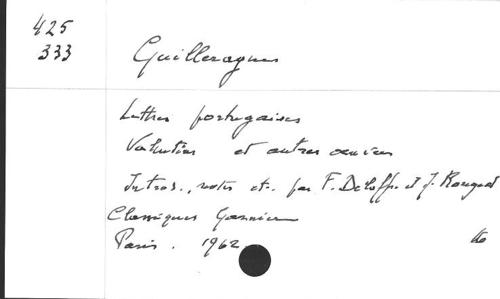 425
333
Guilleragues
Lettres portugaises
Valentins et autres œuvres
Introd., notes etc. par F. Deloffre et J. Rougeot
Classiques Garnier
Paris. 1962